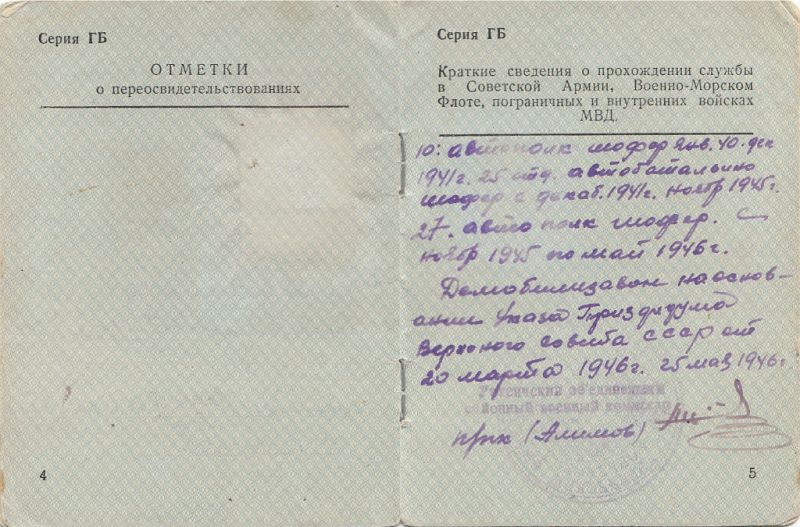 Серия ГБ
ОТМЕТКИ
о переосвидетельствованиях
4
Серия ГБ
Краткие сведения о прохождении службы
в Советской Армии, Военно-Морском
Флоте, пограничных и внутренних войсках
МВД.
10: автополк шофер Янв. 40. дек
1941г. 25 отд. автобатальино
шофер с декаб. 1941г. ноябр 1945г.
27. авто полк шофер. С
ноябр 1945 по май 1946г.
Демобилизован на основ-
ании Указа Президума
Верхоного совета СССР от
20 марта 1946г. 25 мая 1946г
объединенный
районный военный комиссар
(Алимов)
5